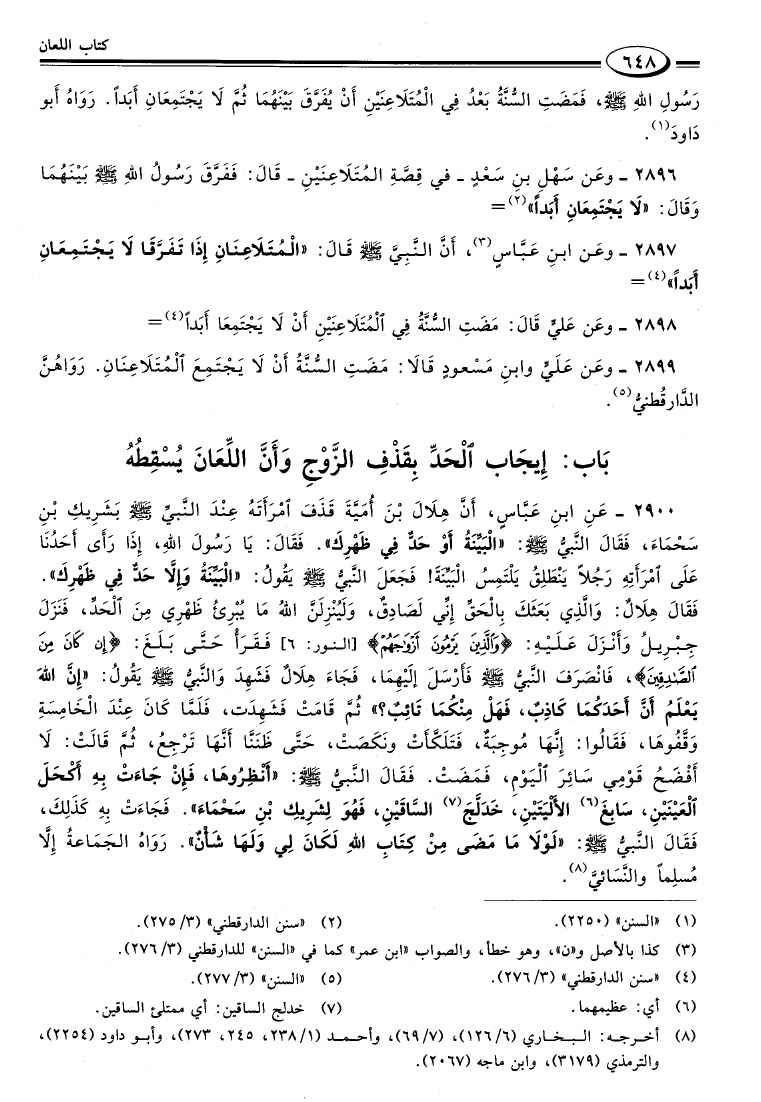 كتاب اللعان
٦٤٨
رَسُولِ اللهِ ﷺ، فَمَضَتِ السُّنَّةُ بَعْدُ فِي الْمُتَلَاعِنَيْنِ أَنْ يُفَرَّقَ بَيْنَهُمَا ثُمَّ لَا يَجْتَمِعَانِ أَبَداً. رَوَاهُ أَبو
دَاودَ(١).
٢٨٩٦ ـ وعَن سَهْلِ بنِ سَعْدٍ ـ في قِصَّةِ المُتَلَاعِنَيْنِ ـ قَالَ: فَفَرَّقَ رَسُولُ اللهِ ﷺ بَيْنَهُمَا
وَقَالَ: «لَا يَجْتَمِعَانِ أَبَداً»(٢)=
٢٨٩٧ ـ وعَن ابنِ عَبَّاسٍ(٣)، أَنَّ النَّبِيَّ ﷺ قَالَ: «الْمُتَلَاعِنَانِ إِذَا تَفَرَّقَا لَا يَجْتَمِعَانِ
أَبَداً»(٤)=
٢٨٩٨ ـ وعَن عَليٍّ قَالَ: مَضَتِ السُّنَّةُ فِي ٱلْمُتَلَاعِنَيْنِ أَنْ لَا يَجْتَمِعَا أَبَداً(٤)=
٢٨٩٩ ـ وعَن عَلَيٍّ وابنِ مَسْعودٍ قَالَا: مَضَتِ السُّنَّةُ أَنْ لَا يَجْتَمِعَ ٱلْمُتَلَاعِنَانِ. رَوَاهُنَّ
الدَّارقُطنيُّ(٥).
بَاب: إِيجَاب ٱلْحَدِّ بِقَذْفِ الزَّوْجِ وَأَنَّ اللِّعَانَ يُسْقِطُهُ
٢٩٠٠ ـ عَنِ ابنِ عَبَّاسٍ، أَنَّ هِلَالَ بْنَ أُمَيَّةَ قَذَفَ ٱمْرَأَتَهُ عِنْدَ النَّبيِّ ﷺ بَشَرِيكِ بْنِ
سَحْمَاءَ، فَقَالَ النَّبيُّ ﷺ: «الْبَيِّنَةُ أَوْ حَدٌّ فِي ظَهْرِكَ». فَقَالَ: يَا رَسُولَ اللهِ، إِذَا رَأَى أَحَدُنَا
عَلَى ٱمْرَأَتِهِ رَجُلاً يَنْطَلِقُ يَلْتَمِسُ الْبَيِّنَةَ! فَجَعَلَ النَّبيُّ ﷺ يَقُولُ: «الْبَيِّنَةُ وَإِلَّا حَدٌّ فِي ظَهْرِكَ».
فَقَالَ هِلَالٌ: وَالَّذِي بَعَثَكَ بِالْحَقِّ إِنِّي لَصَادِقٌ، وَلَيُنْزِلَنَّ اللهُ مَا يُبْرِئُ ظَهْرِي مِنَ ٱلْحَدِّ، فَنَزَلَ
جِبْرِيلُ وَأَنْزَلَ عَلَيْهِ: ﴿وَٱلَّذِينَ يَرْمُونَ أَزْوَٰجَهُمْ﴾ [النور: ٦] فَقَرَأَ حَتَّى بَلَغَ: ﴿إِن كَانَ مِنَ
ٱلصَّٰدِقِينَ﴾، فَانْصَرَفَ النَّبيُّ ﷺ فَأَرْسَلَ إِلَيْهِمَا، فَجَاءَ هِلَالٌ فَشَهِدَ وَالنَّبيُّ ﷺ يَقُولُ: «إِنَّ اللهَ
يَعْلَمُ أَنَّ أَحَدَكُمَا كَاذِبٌ، فَهَلْ مِنْكُمَا تَائِبٌ؟» ثُمَّ قَامَتْ فَشَهِدَت، فَلَمَّا كَانَ عِنْدَ الْخَامِسَةِ
وَقَّفُوهَا، فَقَالُوا: إِنَّهَا مُوجِبَةٌ، فَتَلَكَّأَتْ ونَكَصَتْ، حَتَّى ظَنَنَّا أَنَّهَا تَرْجِعُ، ثُمَّ قَالَتْ: لَا
أَفْضَحُ قَوْمِي سَائِرَ ٱلْيَوْمِ، فَمَضَتْ. فَقَالَ النَّبيُّ ﷺ: «أَنْظِرُوهَا، فَإِنْ جَاءَتْ بِهِ أَكْحَلَ
ٱلْعَيْنَيْنِ، سَابِغَ(٦) الأَلْيَتَيْنِ، خَدَلَّجَ(٧) السَّاقَيْنِ، فَهُوَ لِشَرِيكِ بْنِ سَحْمَاءَ». فَجَاءَتْ بِهِ كَذَلِكَ،
فَقَالَ النَّبيُّ ﷺ: «لَوْلَا مَا مَضَى مِنْ كِتَابِ اللهِ لَكَانَ لِي وَلَهَا شَأْنٌ». رَوَاهُ الجَمَاعةُ إِلَّا
مُسلِماً والنَّسَائيَّ(٨).
(١) «السنن» (٢٢٥٠). (٢) «سنن الدارقطني» (٣/ ٢٧٥).
(٣) كذا بالأصل و«ن»، وهو خطأ، والصواب «ابن عمر» كما في «السنن» للدارقطني (٣/ ٢٧٦).
(٤) «سنن الدارقطني» (٣/ ٢٧٦). (٥) «السنن» (٣/ ٢٧٧).
(٦) أي: عظيمهما. (٧) خدلج الساقين: أي ممتلئ الساقين.
(٨) أخرجه: البخاري (٦/ ١٢٦)، (٧/ ٦٩)، وأحمد (١/ ٢٣٨، ٢٤٥، ٢٧٣)، وأبو داود (٢٢٥٤)،
والترمذي (٣١٧٩)، وابن ماجه (٢٠٦٧).